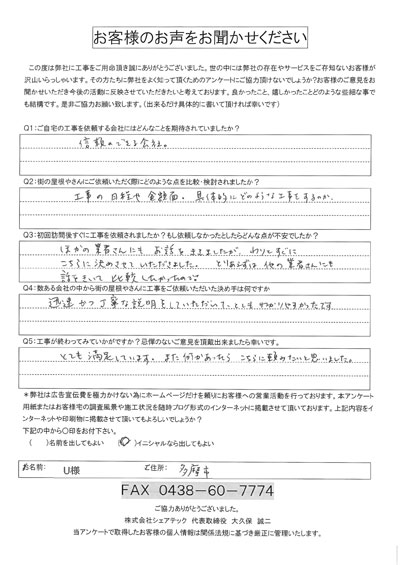 お客様のお声をお聞かせください
この度は弊社に工事をご用命頂き誠にありがとうございました。世の中には弊社の存在やサービスをご存知ないお客様が
沢山いらっしゃいます。その方たちに弊社をよく知って頂くためのアンケートにご協力頂けないでしょうか?お客様のご意見をお
聞かせいただき今後の活動に反映させていただきたいと考えております。良かったこと、嬉しかったことどのような些細な事で
も結構です。是非ご協力お願い致します。(出来るだけ具体的に書いて頂ければ幸いです)
Q1:ご自宅の工事を依頼する会社にはどんなことを期待されていましたか?
信頼のできる会社。
Q2:街の屋根やさんにご依頼いただく際にどのような点を比較・検討されましたか?
工事の日程や金額面。具体的にどのような工事をするのか。
Q3:初回訪問後すぐに工事を依頼されましたか?もし依頼しなかったとしたらどんな点が不安でしたか?
ほかの業者さんにもお話をききましたが、わりとすぐに
こちらに決めさせていただきました。とりあえずは他の業者さんにも
話をきいて比較したかったので
Q4:数ある会社の中から街の屋根やさんに工事をご依頼いただいた決め手は何ですか
迅速かつ丁寧な説明をしていただいて、とてもわかりやすかったです
Q5:工事が終わってみていかがですか?忌憚のないご意見を頂戴出来ましたら幸いです。
とても満足しています。また何かあったらこちらに頼みたいと思いました。
*弊社は広告宣伝費を極力かけない為にホームページだけを頼りにお客様への営業活動を行っております。本アンケート
用紙またはお客様宅の調査風景や施工状況を随時ブログ形式のインターネットに掲載させて頂いております。上記内容をイ
ンターネットや印刷物に掲載させて頂いてもよろしいでしょうか?
下記の中から〇印をお付下さい。
( )名前を出してもよい (〇)イニシャルなら出してもよい
お名前: U様 ご住所: 多摩市
FAX 0438-60-7774
ご協力ありがとうございました。
株式会社シェアテック 代表取締役 大久保 誠二
当アンケートで取得したお客様の個人情報は関係法規に基づき厳正に管理いたします。